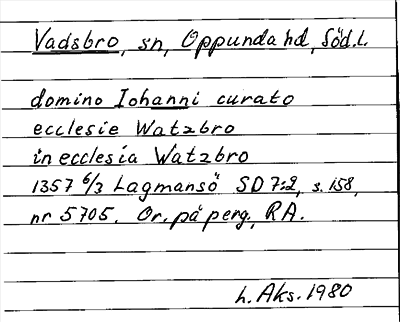 Vadsbro, sn, Oppunda hd, Söd.l.
domino Iohanni curato
ecclesie Watzbro
in ecclesia Watzbro
1357 6/3 Lagmansö SD 7:2, s. 158,
nr 5705. Or. på perg, RA.
h. Aks. 1980